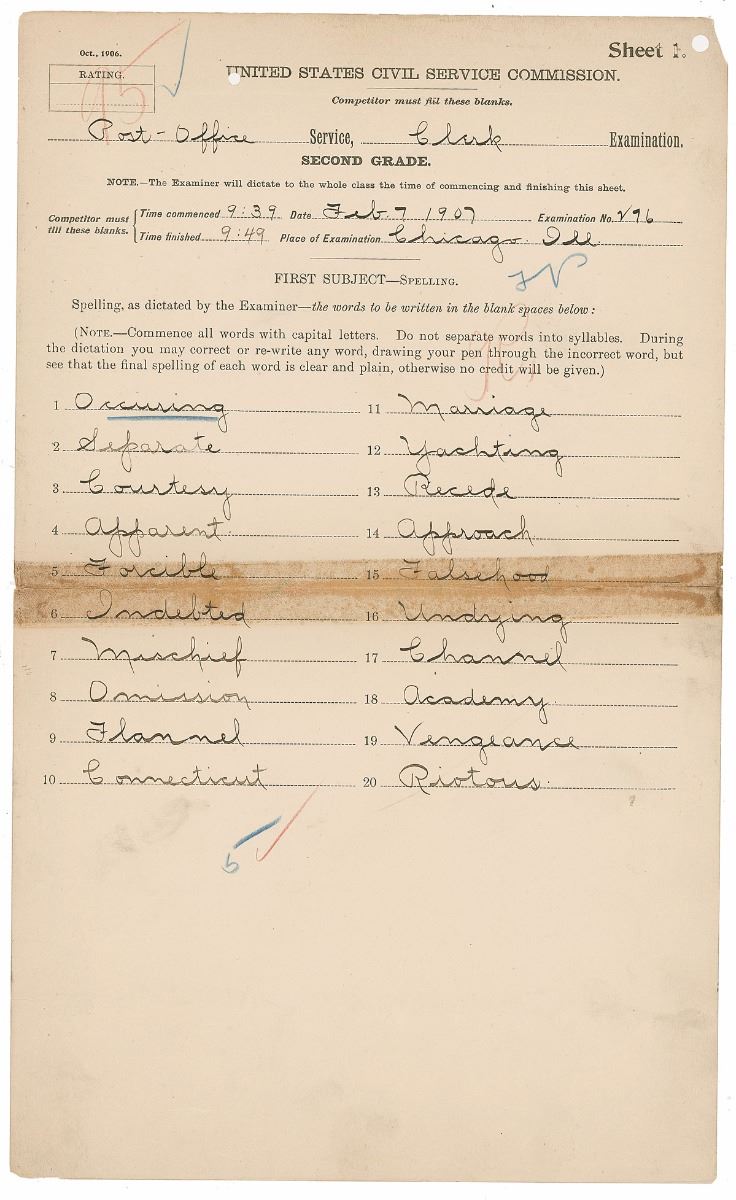 Oct., 1906.
Sheet 1.
RATING.
95
UNITED STATES CIVIL SERVICE COMMISSION.
Competitor must fill these blanks.
Post-Office Service, Clerk Examination.
SECOND GRADE.
NOTE.—The Examiner will dictate to the whole class the time of commencing and finishing this sheet.
Competitor must fill these blanks.
Time commenced 9:39 Date Feb. 7 1907 Examination No.
Time finished 9:49 Place of Examination Chicago Ill.
FIRST SUBJECT—SPELLING.
Spelling, as dictated by the Examiner—the words to be written in the blank spaces below:
(NOTE.—Commence all words with capital letters. Do not separate words into syllables. During
the dictation you may correct or re-write any word, drawing your pen through the incorrect word, but
see that the final spelling of each word is clear and plain, otherwise no credit will be given.)
1 Occuring
2 Separate
3 Courtesy
4 Apparent
5 Forcible
6 Indebted
7 Mischief
8 Omission
9 Flannel
10 Connecticut
11 Marriage
12 Yachting
13 Recede
14 Approach
15 Falsehood
16 Undying
17 Channel
18 Academy
19 Vengeance
20 Riotous
5